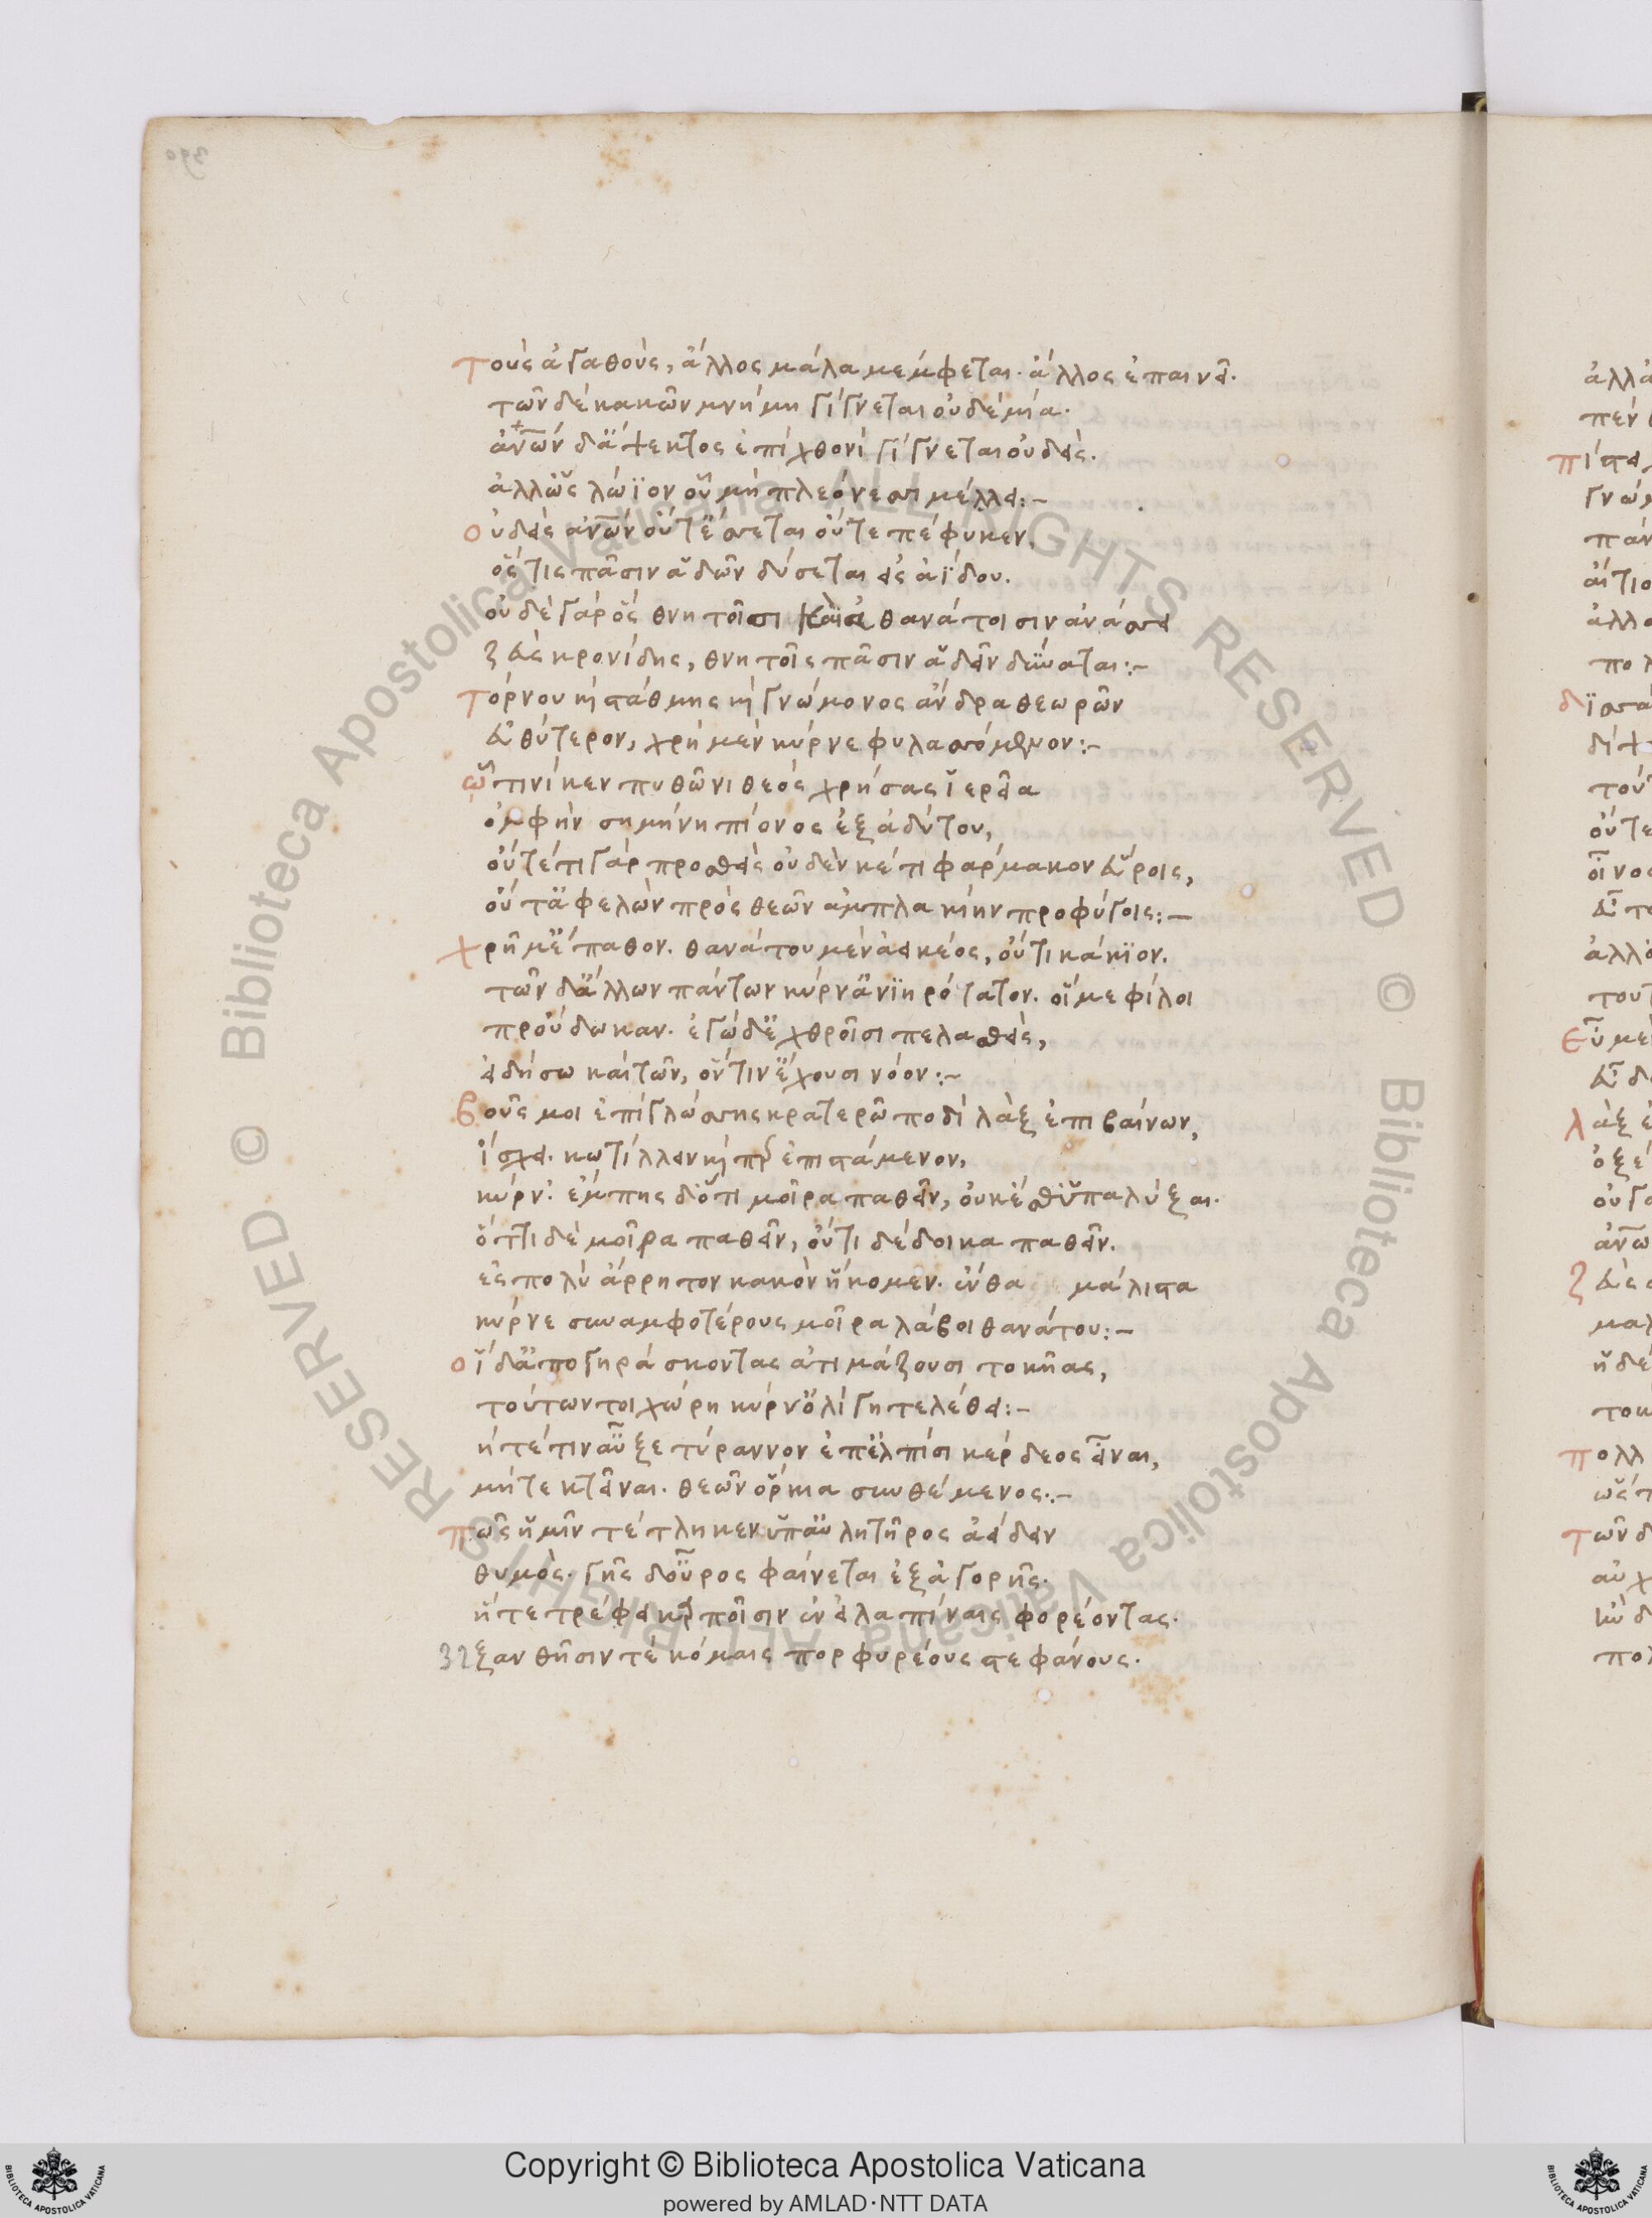 τοὺς ἀγαθοὺς, ἄλλος μάλα μέμφεται· ἄλλος ἐπαινεῖ·
τῶν δὲ κακῶν μνήμη γίγνεται οὐδεμία·
ἀνῶν δ' ἄψεκτος ἐπὶ χθονὶ γίγνεται οὐδείς.
ἀλλ' ὣς λώϊον οὗ μὴ πλεόνεσσι μέλλει:-
οὐδεὶς ἀνῶν οὔτ' ἔσσεται οὔτε πέφυκεν,
ὅς τις πᾶσιν ἁδῶν δύσεται εἰς ἀΐδου.
οὐδὲ γὰρ ὃς θνητοῖσι καὶ ἀθανάτοισιν ἀνάσσει
ζεὺς κρονίδης, θνητοῖς πᾶσιν ἁδεῖν δύναται:-
τόρνου κὴ στάθμης κὴ γνώμονος ἄνδρα θεωρῶν
εὐθύτερον, χρὴ μὲν κύρνε φυλασσόμενον:-
ᾧ τινί κεν πυθῶνι θεὸς χρήσας ἱερεία
ὀμφὴν σημήνη πίονος ἐξ ἀδύτου,
οὔτέ τι γὰρ προσθεὶς οὐδὲν κέτι φάρμακον εὕροις,
οὔτ' ἀφελὼν πρὸς θεῶν ἀμπλακίην προφύγοις:-
χρῆμ' ἔπαθον. θανάτου μὲν ἀεικέος, οὔτι κάκϊον.
τῶν δ' ἄλλων πάντων κύρν' ἀνϊηρότατον. οἵ με φίλοι
προύδωκαν. ἐγὼ δ' ἐχθροῖσι πελασθεὶς,
εἰδήσω καὶ τῶν, ὅντιν' ἔχουσι νόον:-
βοῦς μοι ἐπὶ γλώσσης κρατερῶ ποδὶ λὰξ ἐπιβαίνων,
ἴσχει. κωτίλλειν κὴ περ ἐπιστάμενον,
κύρν'· ἔμπης δ' ὅτι μοῖρα παθεῖν, οὐκ ἔσθ' ὑπαλύξαι.
ὅττι δὲ μοῖρα παθεῖν, οὔτι δέδοικα παθεῖν.
εἰς πολὺ ἄρρητον κακὸν ἥκομεν. ἔνθα μάλιστα
κύρνε συναμφοτέρους μοῖρα λάβοι θανάτου:-
οἵ δ' ἀπογηράσκοντας ἀτιμάζουσι τοκῆας,
τούτων τοι χώρη κύρν' ὀλίγη τελέθει:-
ή τέ τιν' αὖξε τύραννον ἐπ' ἐλπίσι κέρδεος εἶναι,
μήτε κτεῖναι. θεῶν ὅρκια συνθέμενος:-
πῶς ἡμῖν τέτληκεν ὑπ' αὐλητῆρος ἀείδειν
θυμός. γῆς δ' οὖρος φαίνεται ἐξ ἀγορῆς.
ἥ τε τρέφει καρποῖσιν ἐν εἰλαπίναις φορέοντας.
ξανθῆσίν τε κόμαις πορφυρέους στεφάνους.
Copyright © Biblioteca Apostolica Vaticana
powered by AMLAD·NTT DATA